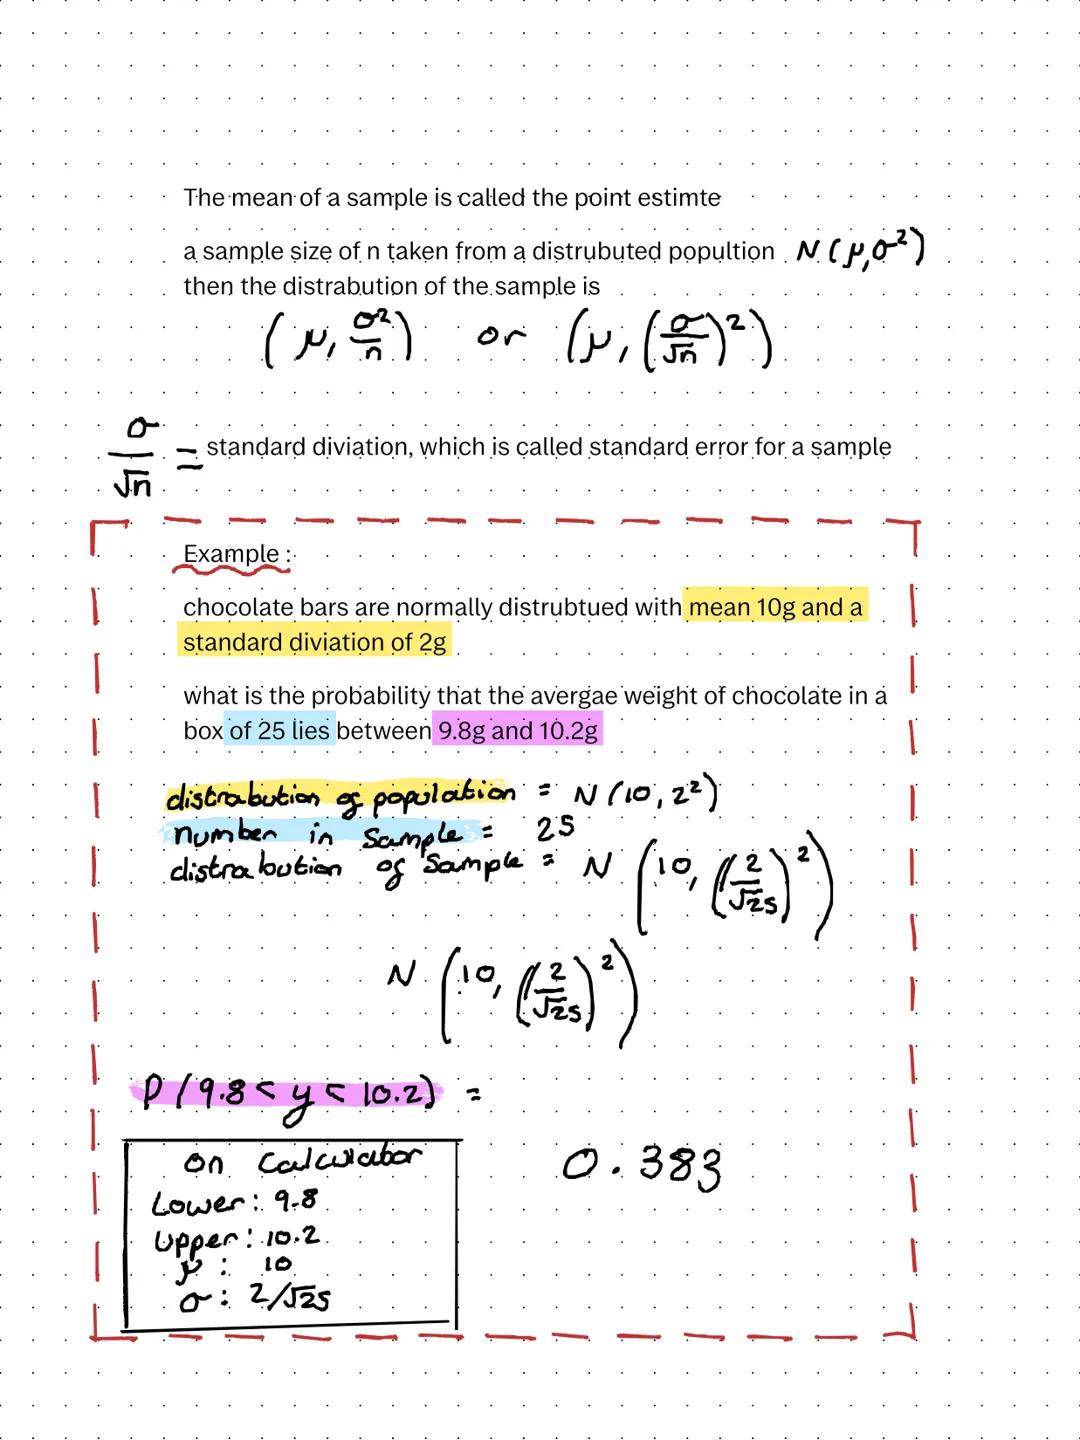 The mean of a sample is called the point estimte
a sample size of n taken from a distrubuted popultion N(μ,σ²)
then the distrabution of the sample is
(μ, σ²/n) or (μ, (σ/√n)²)
σ/√n = standard diviation, which is called standard error for a sample
Example :
chocolate bars are normally distrubtued with mean 10g and a
standard diviation of 2g
what is the probability that the avergae weight of chocolate in a
box of 25 lies between 9.8g and 10.2g
distrabution of population = N(10, 2²)
number in sample = 25
distrabution of sample = N(10, (2/√25)²)
N(10, (2/√25)²)
P(9.8 < y < 10.2) =
0.383
on calculator
Lower: 9.8
upper: 10.2
μ: 10
σ: 2/√25